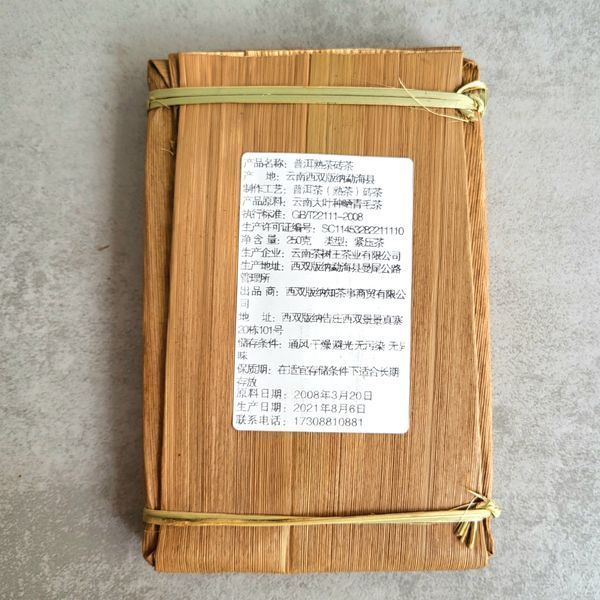 产品名称：普洱熟茶砖茶
产 地：云南西双版纳勐海县
制作工艺：普洱茶（熟茶）砖茶
产品原料：云南大叶种晒青毛茶
执行标准：GB/T22111-2008
生产许可证编号：SC11453282211110
净 含 量：250克 类型：紧压茶
生产企业：云南茶树王茶业有限公司
生产地址：西双版纳勐海县曼尾公路
管理所
出 品 商：西双版纳知茶事商贸有限公
司
地 址：西双版纳告庄西双景景真寨
20栋101号
储存条件：通风 干燥 避光 无污染 无异
味
保质期：在适宜存储条件下适合长期
存放
原料日期：2008年3月20日
生产日期：2021年8月6日
联系电话：17308810881